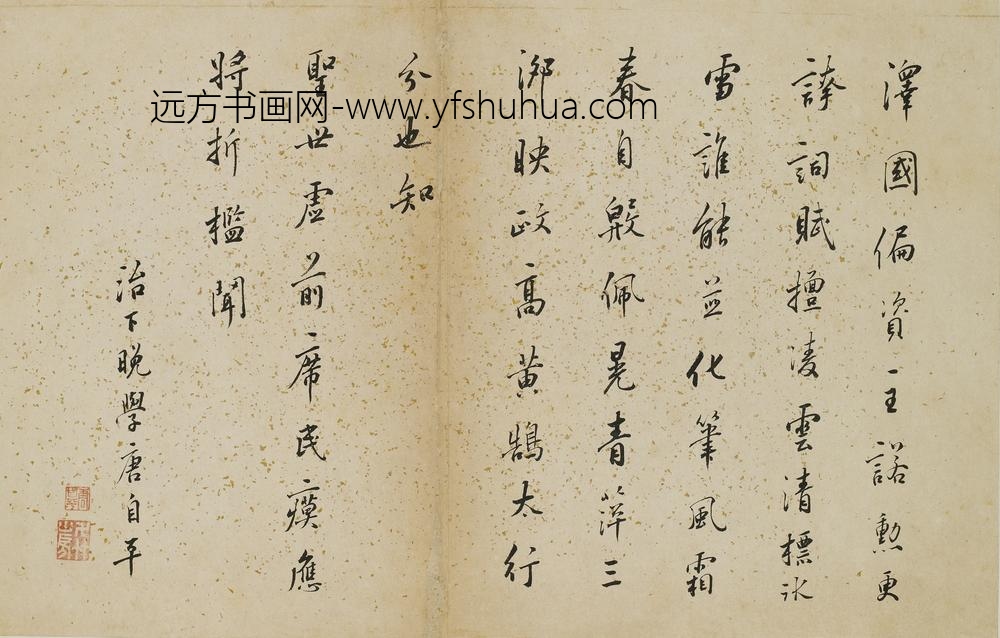 澤國偏資主諾勲更
詞賦擅凌雲清標冰
雪誰能並化筆風霜
春自殿佩晃青萍三
泖映政高黄鵠太行
分也知
聖世虛前席民瘼應
將折檻聞
治下晚學唐自平
远方书画网-www.yfshuhua.com